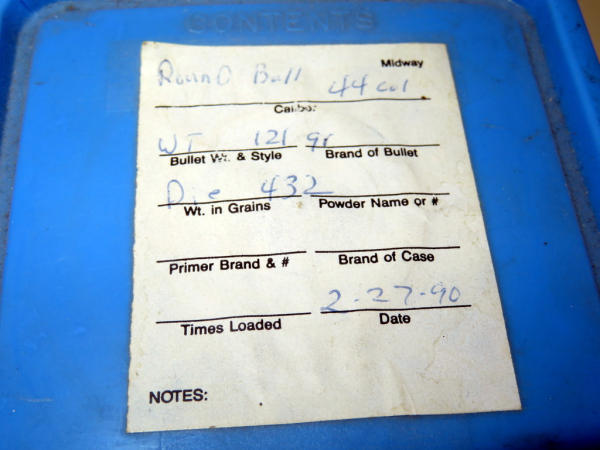 CONTENTS
Midway
Round Ball 44 cal
Caliber
WT 121 gr
Bullet Wt. & Style Brand of Bullet
Die 432
Wt. in Grains Powder Name or #
Primer Brand & # Brand of Case
2-27-90
Times Loaded Date
NOTES: